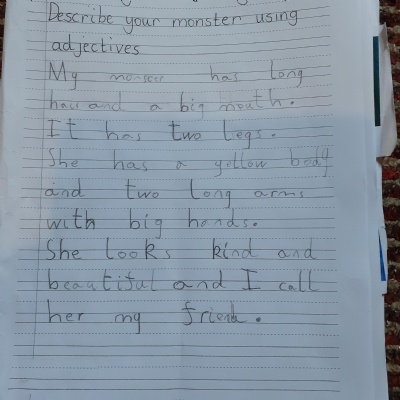 Describe your monster using
adjectives
My monster has long
hair and a big mouth.
It has two legs.
She has a yellow body
and two long arms
with big hands.
She looks kind and
beautiful and I call
her my friend.